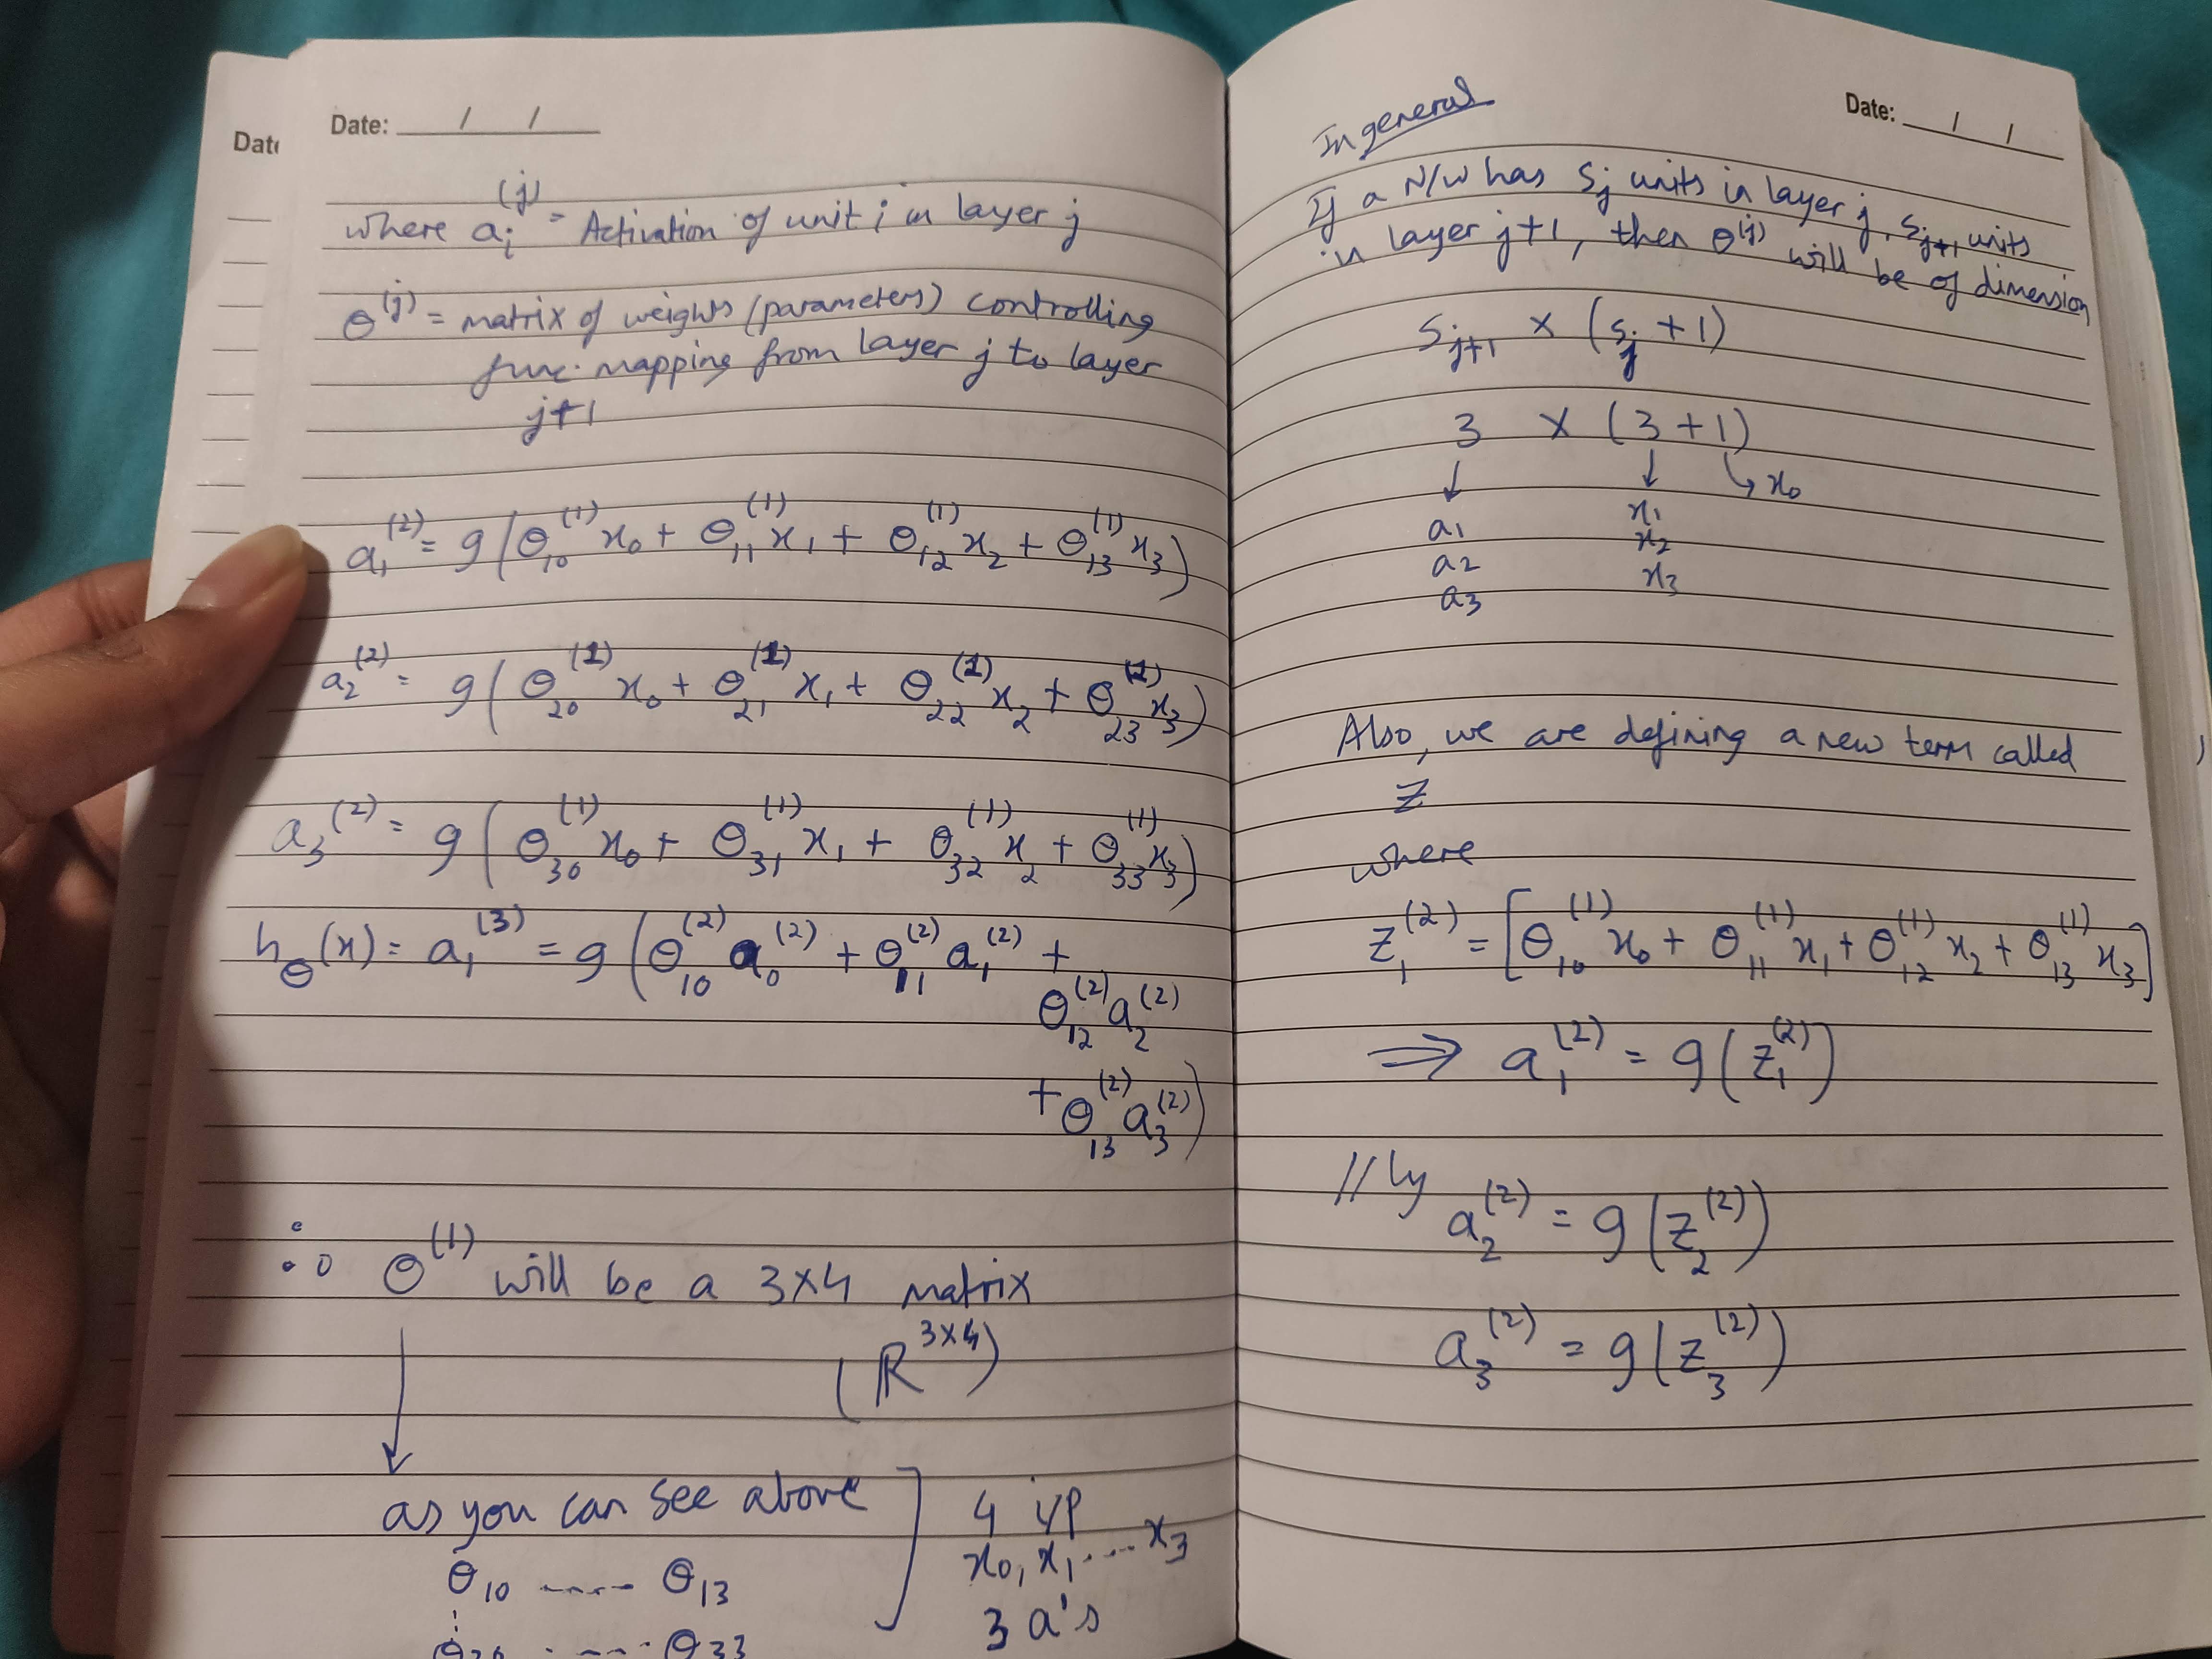 Date: / /
where aᵢ⁽ʲ⁾ = Activation of unit i in layer j
θ⁽ʲ⁾ = matrix of weights (parameters) controlling
func. mapping from layer j to layer
j+1
a₁⁽²⁾ = g(θ₁₀⁽¹⁾x₀ + θ₁₁⁽¹⁾x₁ + θ₁₂⁽¹⁾x₂ + θ₁₃⁽¹⁾x₃)
a₂⁽²⁾ = g(θ₂₀⁽¹⁾x₀ + θ₂₁⁽¹⁾x₁ + θ₂₂⁽¹⁾x₂ + θ₂₃⁽¹⁾x₃)
a₃⁽²⁾ = g(θ₃₀⁽¹⁾x₀ + θ₃₁⁽¹⁾x₁ + θ₃₂⁽¹⁾x₂ + θ₃₃⁽¹⁾x₃)
h_θ(x) = a₁⁽³⁾ = g(θ₁₀⁽²⁾a₀⁽²⁾ + θ₁₁⁽²⁾a₁⁽²⁾ +
θ₁₂⁽²⁾a₂⁽²⁾
+ θ₁₃⁽²⁾a₃⁽²⁾)
∴ θ⁽¹⁾ will be a 3x4 matrix
(R^3x4)
↓
as you can see above ]
4 i/p
θ₁₀ ----- θ₁₃
x₀, x₁ .... x₃
⋮
3 a's
θ₃₀ . --- θ₃₃
Date: / /
In general
If a N/W has sⱼ units in layer j, sⱼ₊₁ units
in layer j+1, then θ⁽ʲ⁾ will be of dimension
sⱼ₊₁ x (sⱼ + 1)
3 x (3 + 1)
↓ ↓ ↳ x₀
a₁ x₁
a₂ x₂
a₃ x₃
Also, we are defining a new term called
z
where
z₁⁽²⁾ = [θ₁₀⁽¹⁾x₀ + θ₁₁⁽¹⁾x₁ + θ₁₂⁽¹⁾x₂ + θ₁₃⁽¹⁾x₃]
⇒ a₁⁽²⁾ = g(z₁⁽²⁾)
//ly
a₂⁽²⁾ = g(z₂⁽²⁾)
a₃⁽²⁾ = g(z₃⁽²⁾)